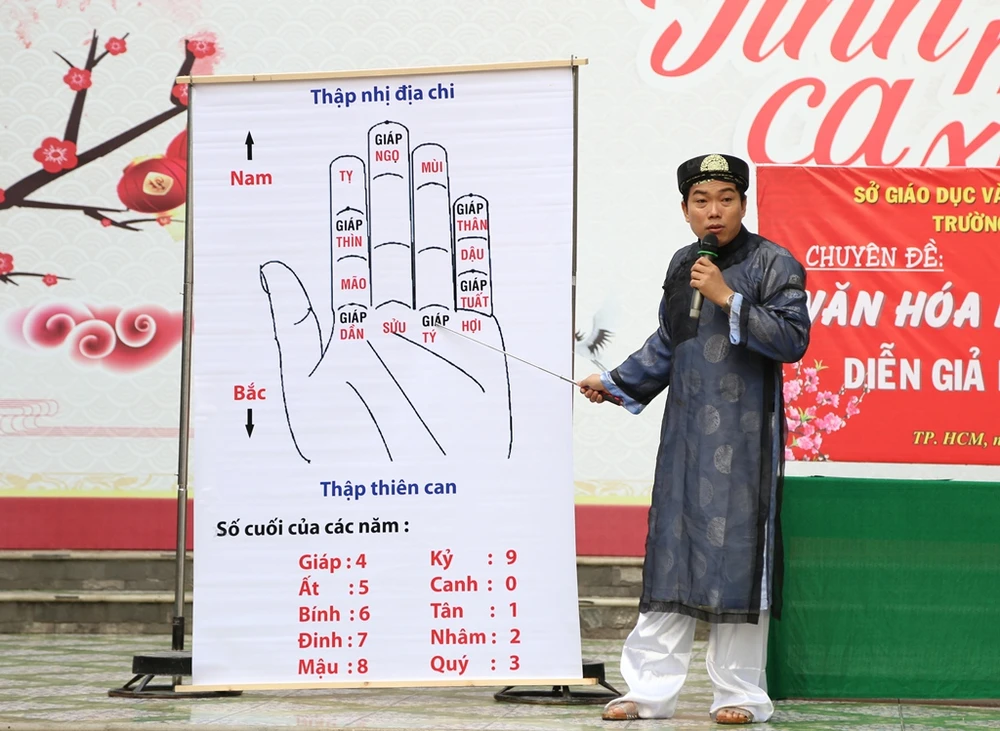 Thập nhị địa chi
Nam
GIÁP
NGỌ
TỴ
MÙI
GIÁP
THÌN
GIÁP
THÂN
MÃO
DẬU
GIÁP
TUẤT
GIÁP
DẦN
SỬU
GIÁP
TÝ
HỢI
Bắc
Thập thiên can
Số cuối của các năm :
Giáp : 4
Kỷ : 9
Ất : 5
Canh : 0
Bính : 6
Tân : 1
Đinh : 7
Nhâm : 2
Mậu : 8
Quý : 3
ca
SỞ GIÁO DỤC VÀ
TRƯỜNG
CHUYÊN ĐỀ:
VĂN HÓA
DIỄN GIẢ
TP. HCM,